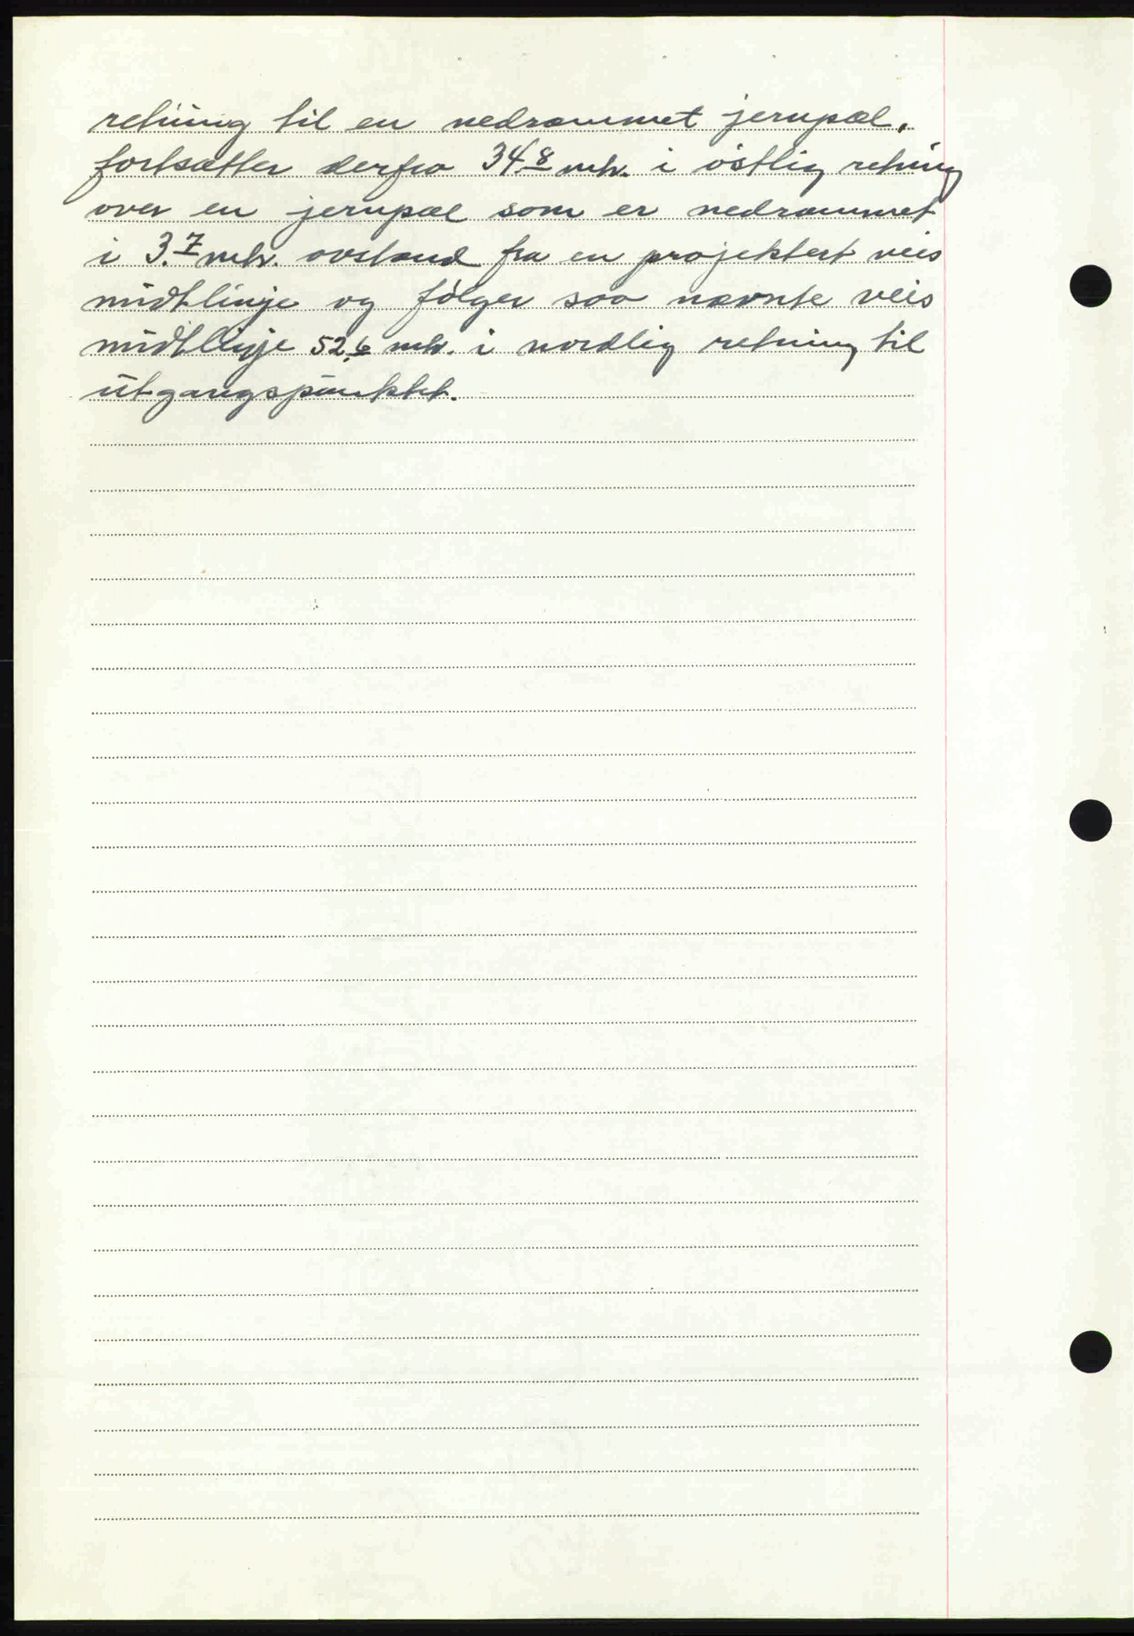 retning til en nedrammet jernpæl,
fortsætter derfra 34.8 mtr. i østlig retning
over en jernpæl som er nedrammet
i 3.7 mtr. avstand fra en projektert veis
midtlinje og følger saa nævnte veis
midtlinje 52,6 mtr. i nordlig retning til
utgangspunktet.